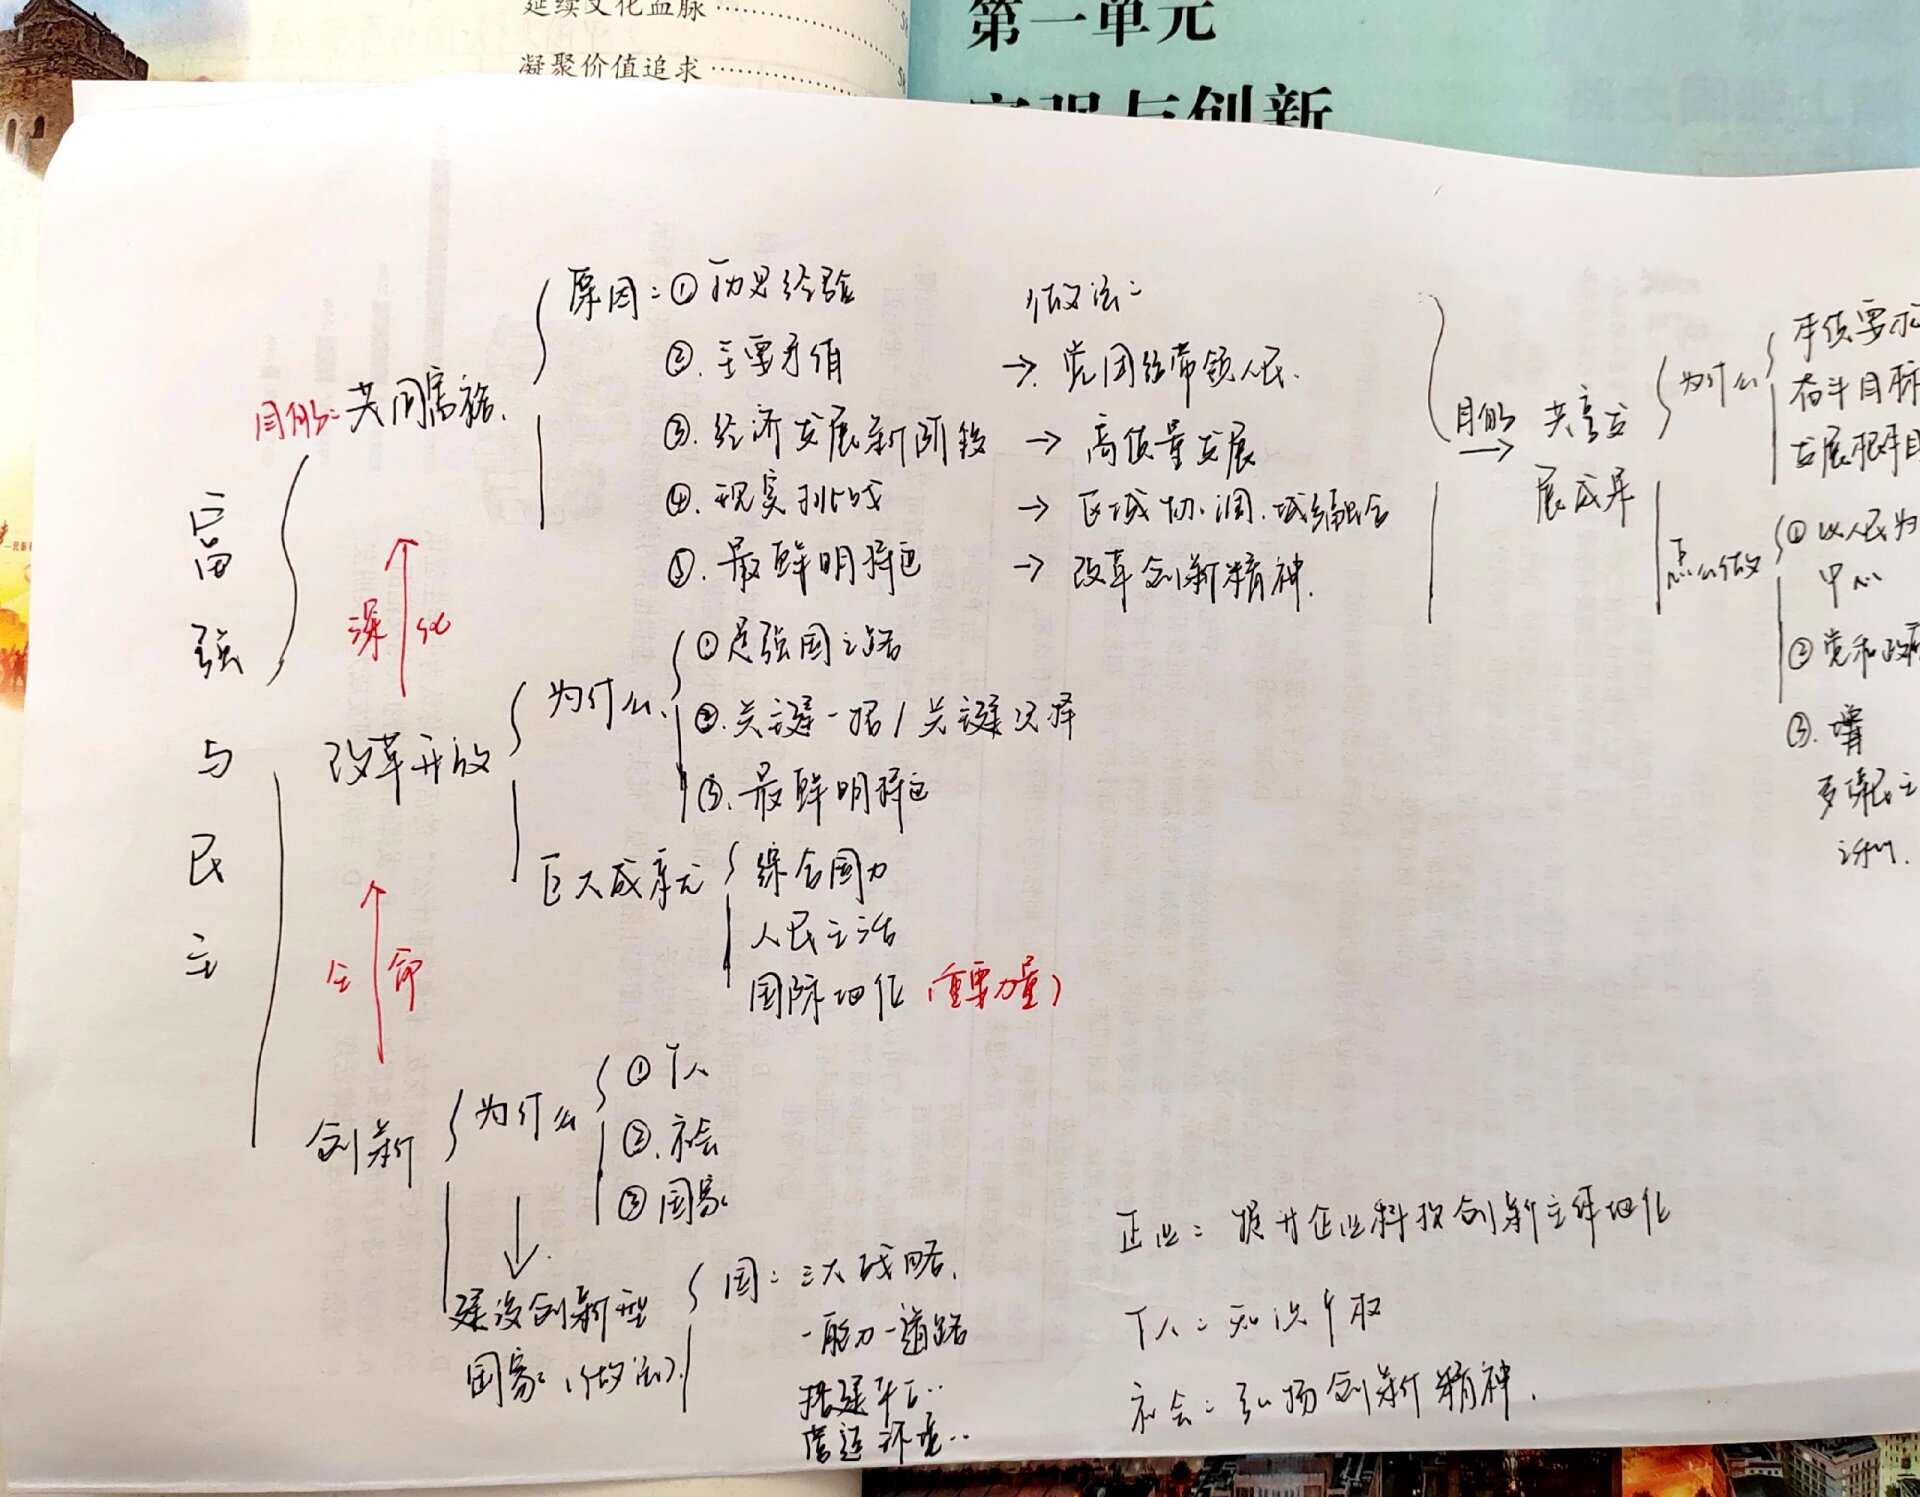 延续文化血脉
凝聚价值追求
第一单元
富强与创新
富强与民主
目的:共同富裕.
原因:①历史经验
②.主要矛盾
③.经济发展新阶段
④.现实挑战
⑤.最鲜明特色
做法:
→.党团结带领人民.
→高质量发展
→区域协调.城乡融合
→改革创新精神.
目的
→
共享发
展成果
为什么
本质要求
奋斗目标
发展根本目
怎么做
①以人民为
中心
②党和政府
③.
深化
改革开放
为什么.
①是强国之路
②.关键一招/关键抉择
③.最鲜明特色
巨大成就
综合国力
人民生活
国际地位(重要力量)
生命
创新
为什么
①个人
②.社会
③国家
建设创新型
国家(做法)
国:三大战略.
一能力一道路
搭建平台..
营造环境..
企业:提升企业科技创新主体地位
个人:知识产权
社会:弘扬创新精神.